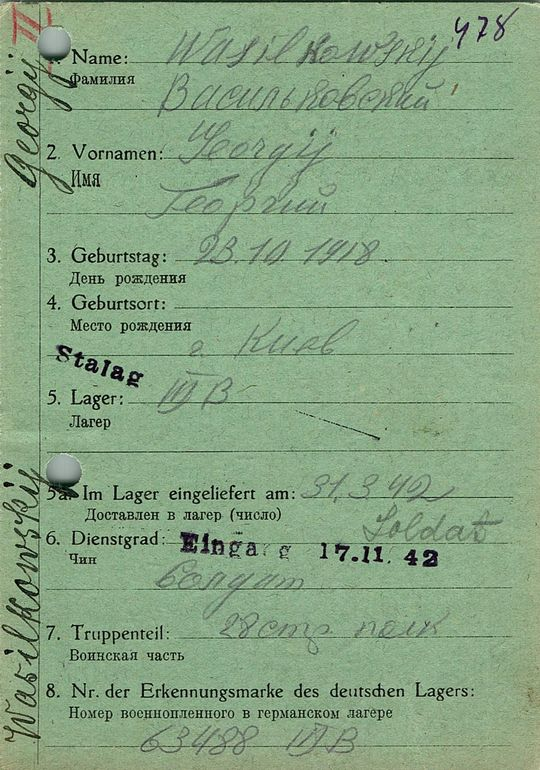 II
478
1. Name: Wasilkowskij
Фамилия
Васильковский
2. Vornamen: Georgij
Имя
Георгий
3. Geburtstag: 23.10.1918.
День рождения
4. Geburtsort:
Место рождения
г. Киев
Stalag
5. Lager: III B
Лагер
5a. Im Lager eingeliefert am: 31.3.42
Доставлен в лагер (число)
Soldat
6. Dienstgrad: Eingang 17.11.42
Чин
Солдат
7. Truppenteil: 28 стр. полк
Воинская часть
8. Nr. der Erkennungsmarke des deutschen Lagers:
Номер военнопленного в германском лагере
63488 III B
Wasilkowskij Georgij